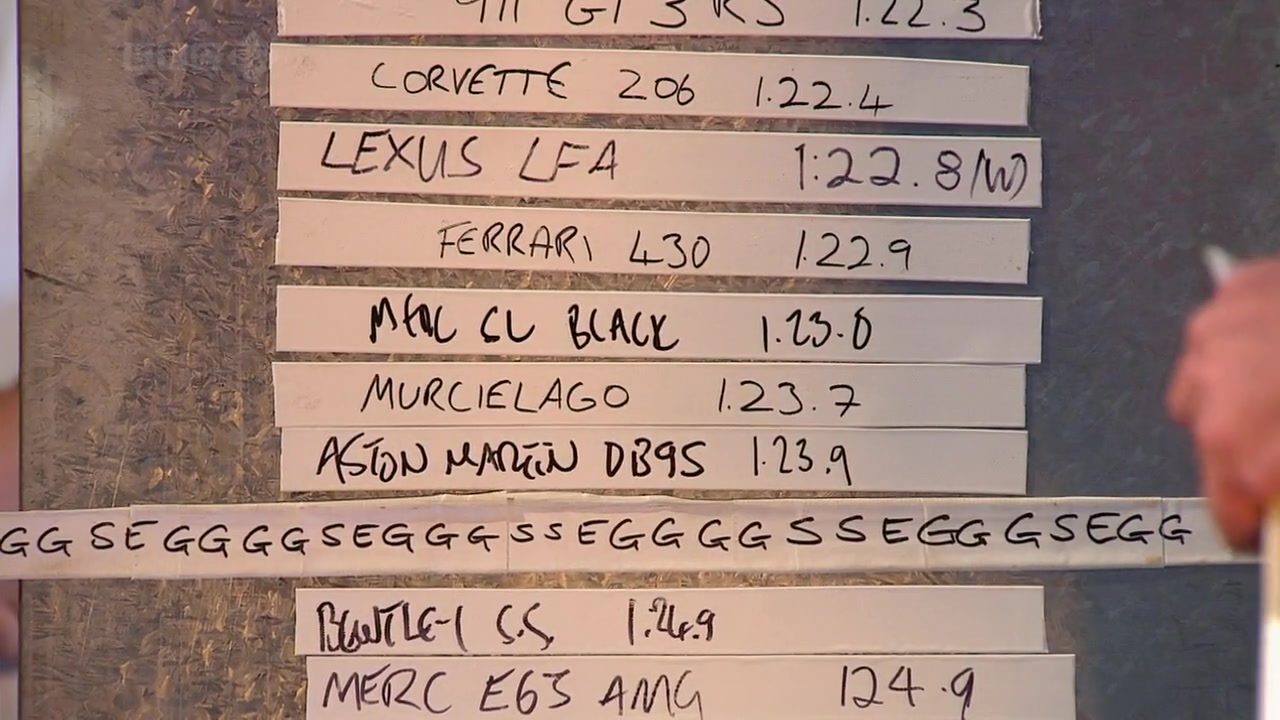 911 GT3 RS 1.22.3
CORVETTE 206 1.22.4
LEXUS LFA 1:22.8 (W)
FERRARI 430 1.22.9
MERC SL BLACK 1.23.0
MURCIELAGO 1.23.7
ASTON MARTIN DB9S 1.23.9
GGSEGGGGSEGGGSSEGGGGSSEGGGSEGG
BENTLEY S.S. 1.24.9
MERC E63 AMG 124.9